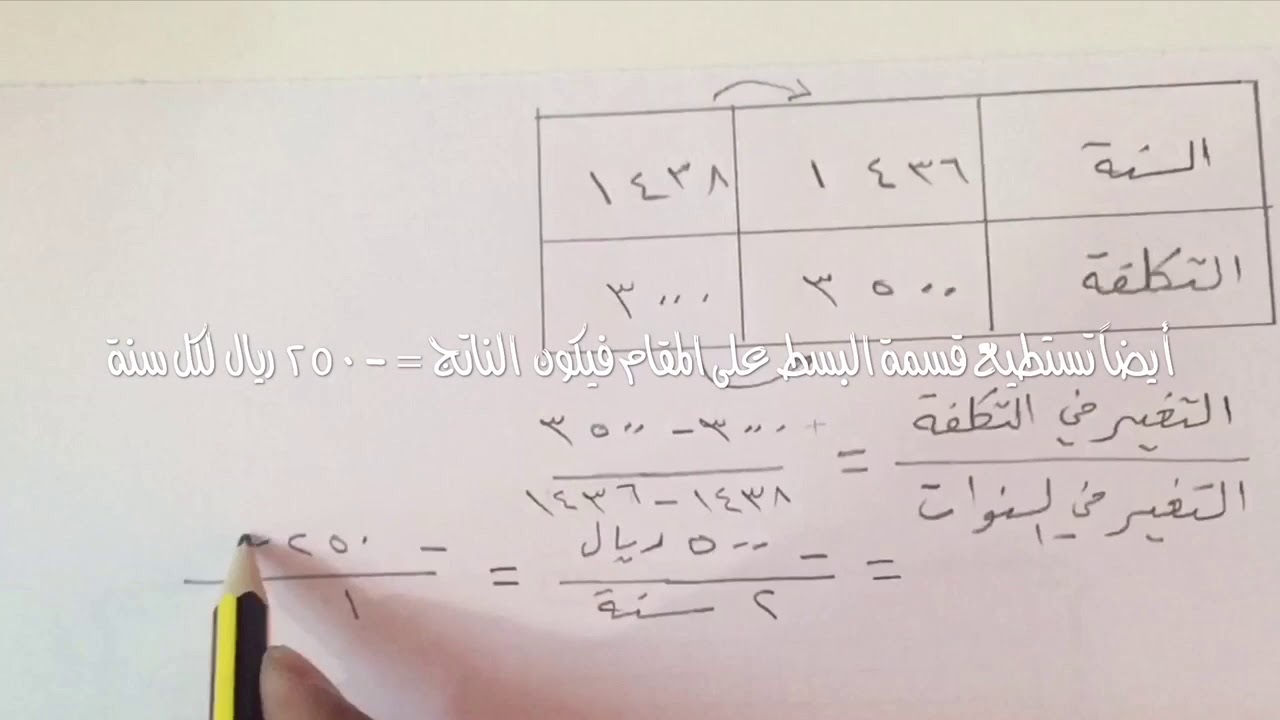 السنة ١٤٣٦ ١٤٣٨
التكلفة ٣٥٠٠ ٣٠٠٠
أيضاً تستطيع قسمة البسط على المقام فيكون الناتج = -٢٥٠ ريال لكل سنة
التغير في التكلفة = ٣٠٠٠ - ٣٥٠٠
التغير في السنوات ١٤٣٨ - ١٤٣٦
= - ٥٠٠ ريال = - ٢٥٠
٢ سنة ١